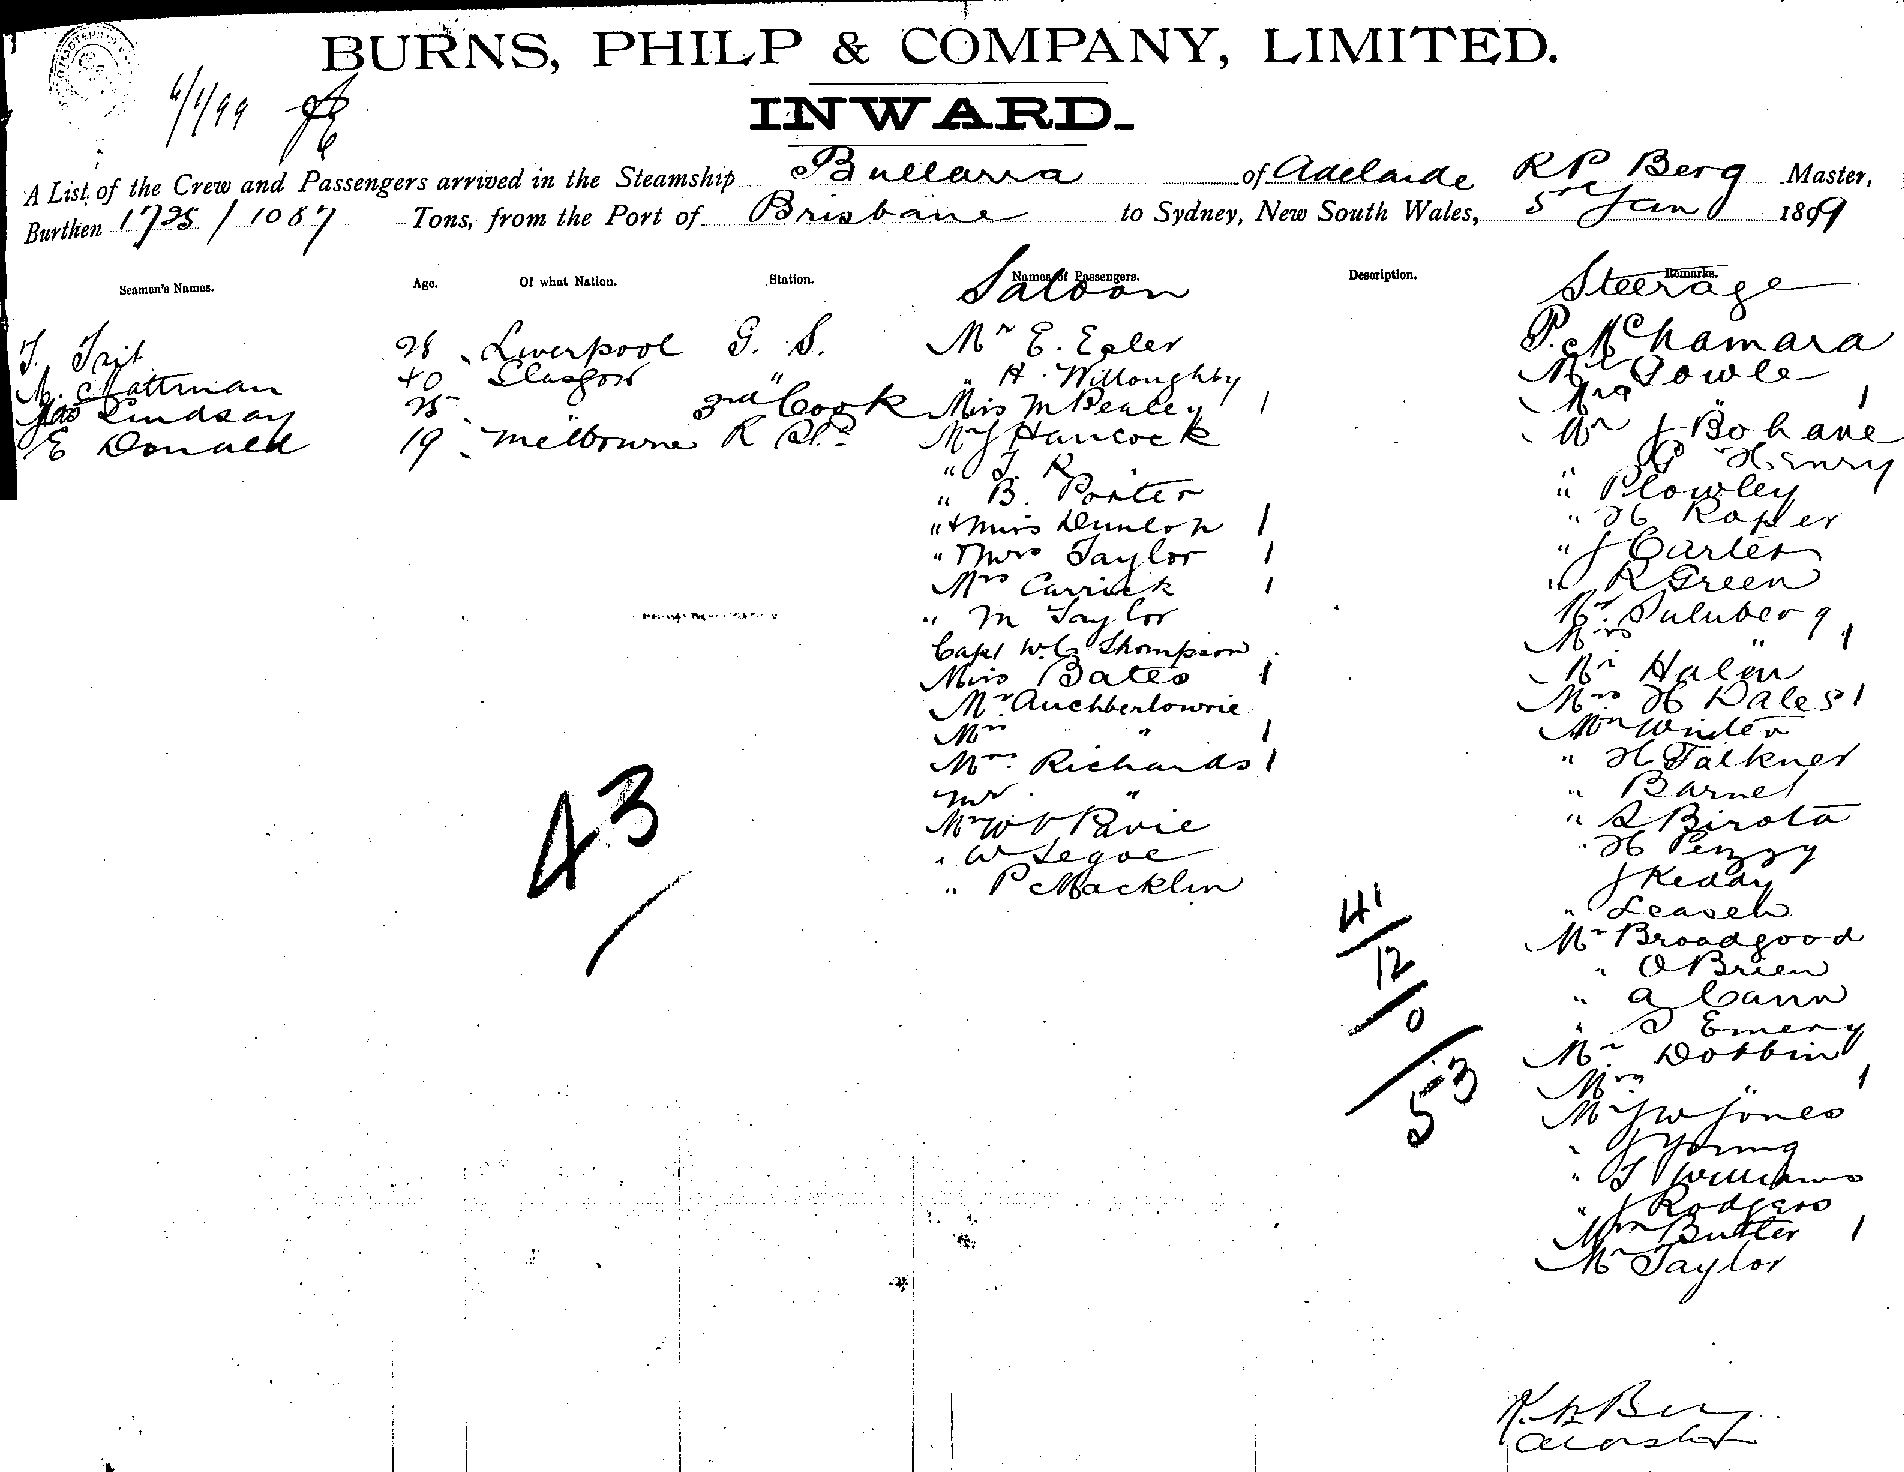 BURNS, PHILP & COMPANY, LIMITED.
INWARD.
6/1/99
A List of the Crew and Passengers arrived in the Steamship Bullarra of Adelaide R P Berg Master,
Burthen 1725 / 1087 Tons, from the Port of Brisbane to Sydney, New South Wales, 5th Jan 1899
Seamen's Names. Age. Of what Nation. Station. Names of Passengers. Description. Remarks.
Saloon Steerage
T. Trit 28 Liverpool G. S.
40 Glasgow "
Lindsay 25 " 3rd Cook
E Donald 19 Melbourne R
Mr E. Epler
" H. Willoughby
Miss M Bealey 1
Mr J Hancock
" T. R
" B. Porter
" & Miss Dunlop 1
" Mrs Taylor 1
Mrs Carrick 1
" M Taylor
Capt W.C Thompson
Miss Bates 1
Mr Auchberlownie
Mrs " 1
Mrs Richards 1
Mr "
Mr W Pavie
" W Segoe
" P Macklin
P. McNamara
Mr Fowle
Mrs " 1
Mr J Bohane
" P Henry
" Plowley
" H Roper
" J Carter
" R Green
Mr Suluberg
Mrs " 1
Mr Halen
Mrs H Dales 1
Mr Winter
" H Falkner
" Barnet
" S Birota
" H Pezzy
J Keday
" Leaseh
Mr Broadgood
" O Brien
" A Cann
" S Emery
Mr Dobbin
Mrs " 1
Mr J W Jones
" J Young
" T Williams
" J Rodgers
Mrs Butler 1
Mr Taylor
43
41
12
0
53
Berg